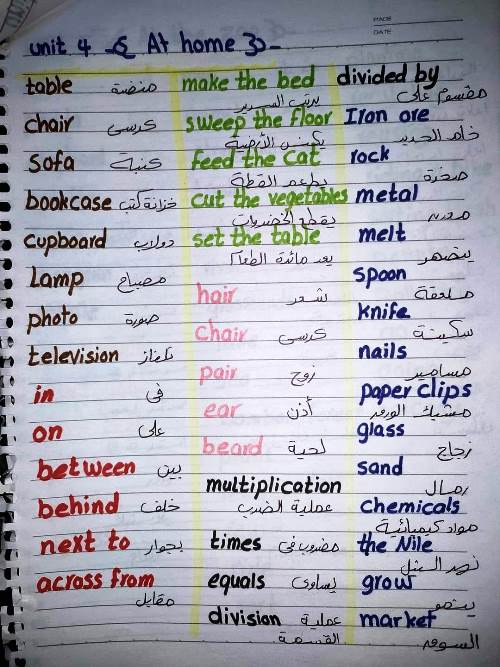 PAGE
DATE
unit 4 At home
table منضدة
chair كرسى
Sofa كنبة
bookcase خزانة كتب
cupboard دولاب
Lamp مصباح
photo صورة
television تلفاز
in فى
on على
between بين
behind خلف
next to بجوار
across from
مقابل
make the bed
يرتب السرير
sweep the floor
يكنس الأرضية
feed the cat
يطعم القطة
cut the vegetables
يقطع الخضروات
set the table
يعد مائدة الطعام
hair شعر
Chair كرسى
pair زوج
ear أذن
beard لحية
multiplication
عملية الضرب
times مضروب فى
equals يساوى
division عملية
القسمة
divided by
مقسوم على
Iron ore
خام الحديد
rock
صخرة
metal
معدن
melt
ينصهر
spoon
ملعقة
knife
سكينة
nails
مسامير
paper clips
مشبك الورق
glass
زجاج
sand
رمال
chemicals
مواد كيميائية
the Nile
نهر النيل
grow
ينمو
market
السوق